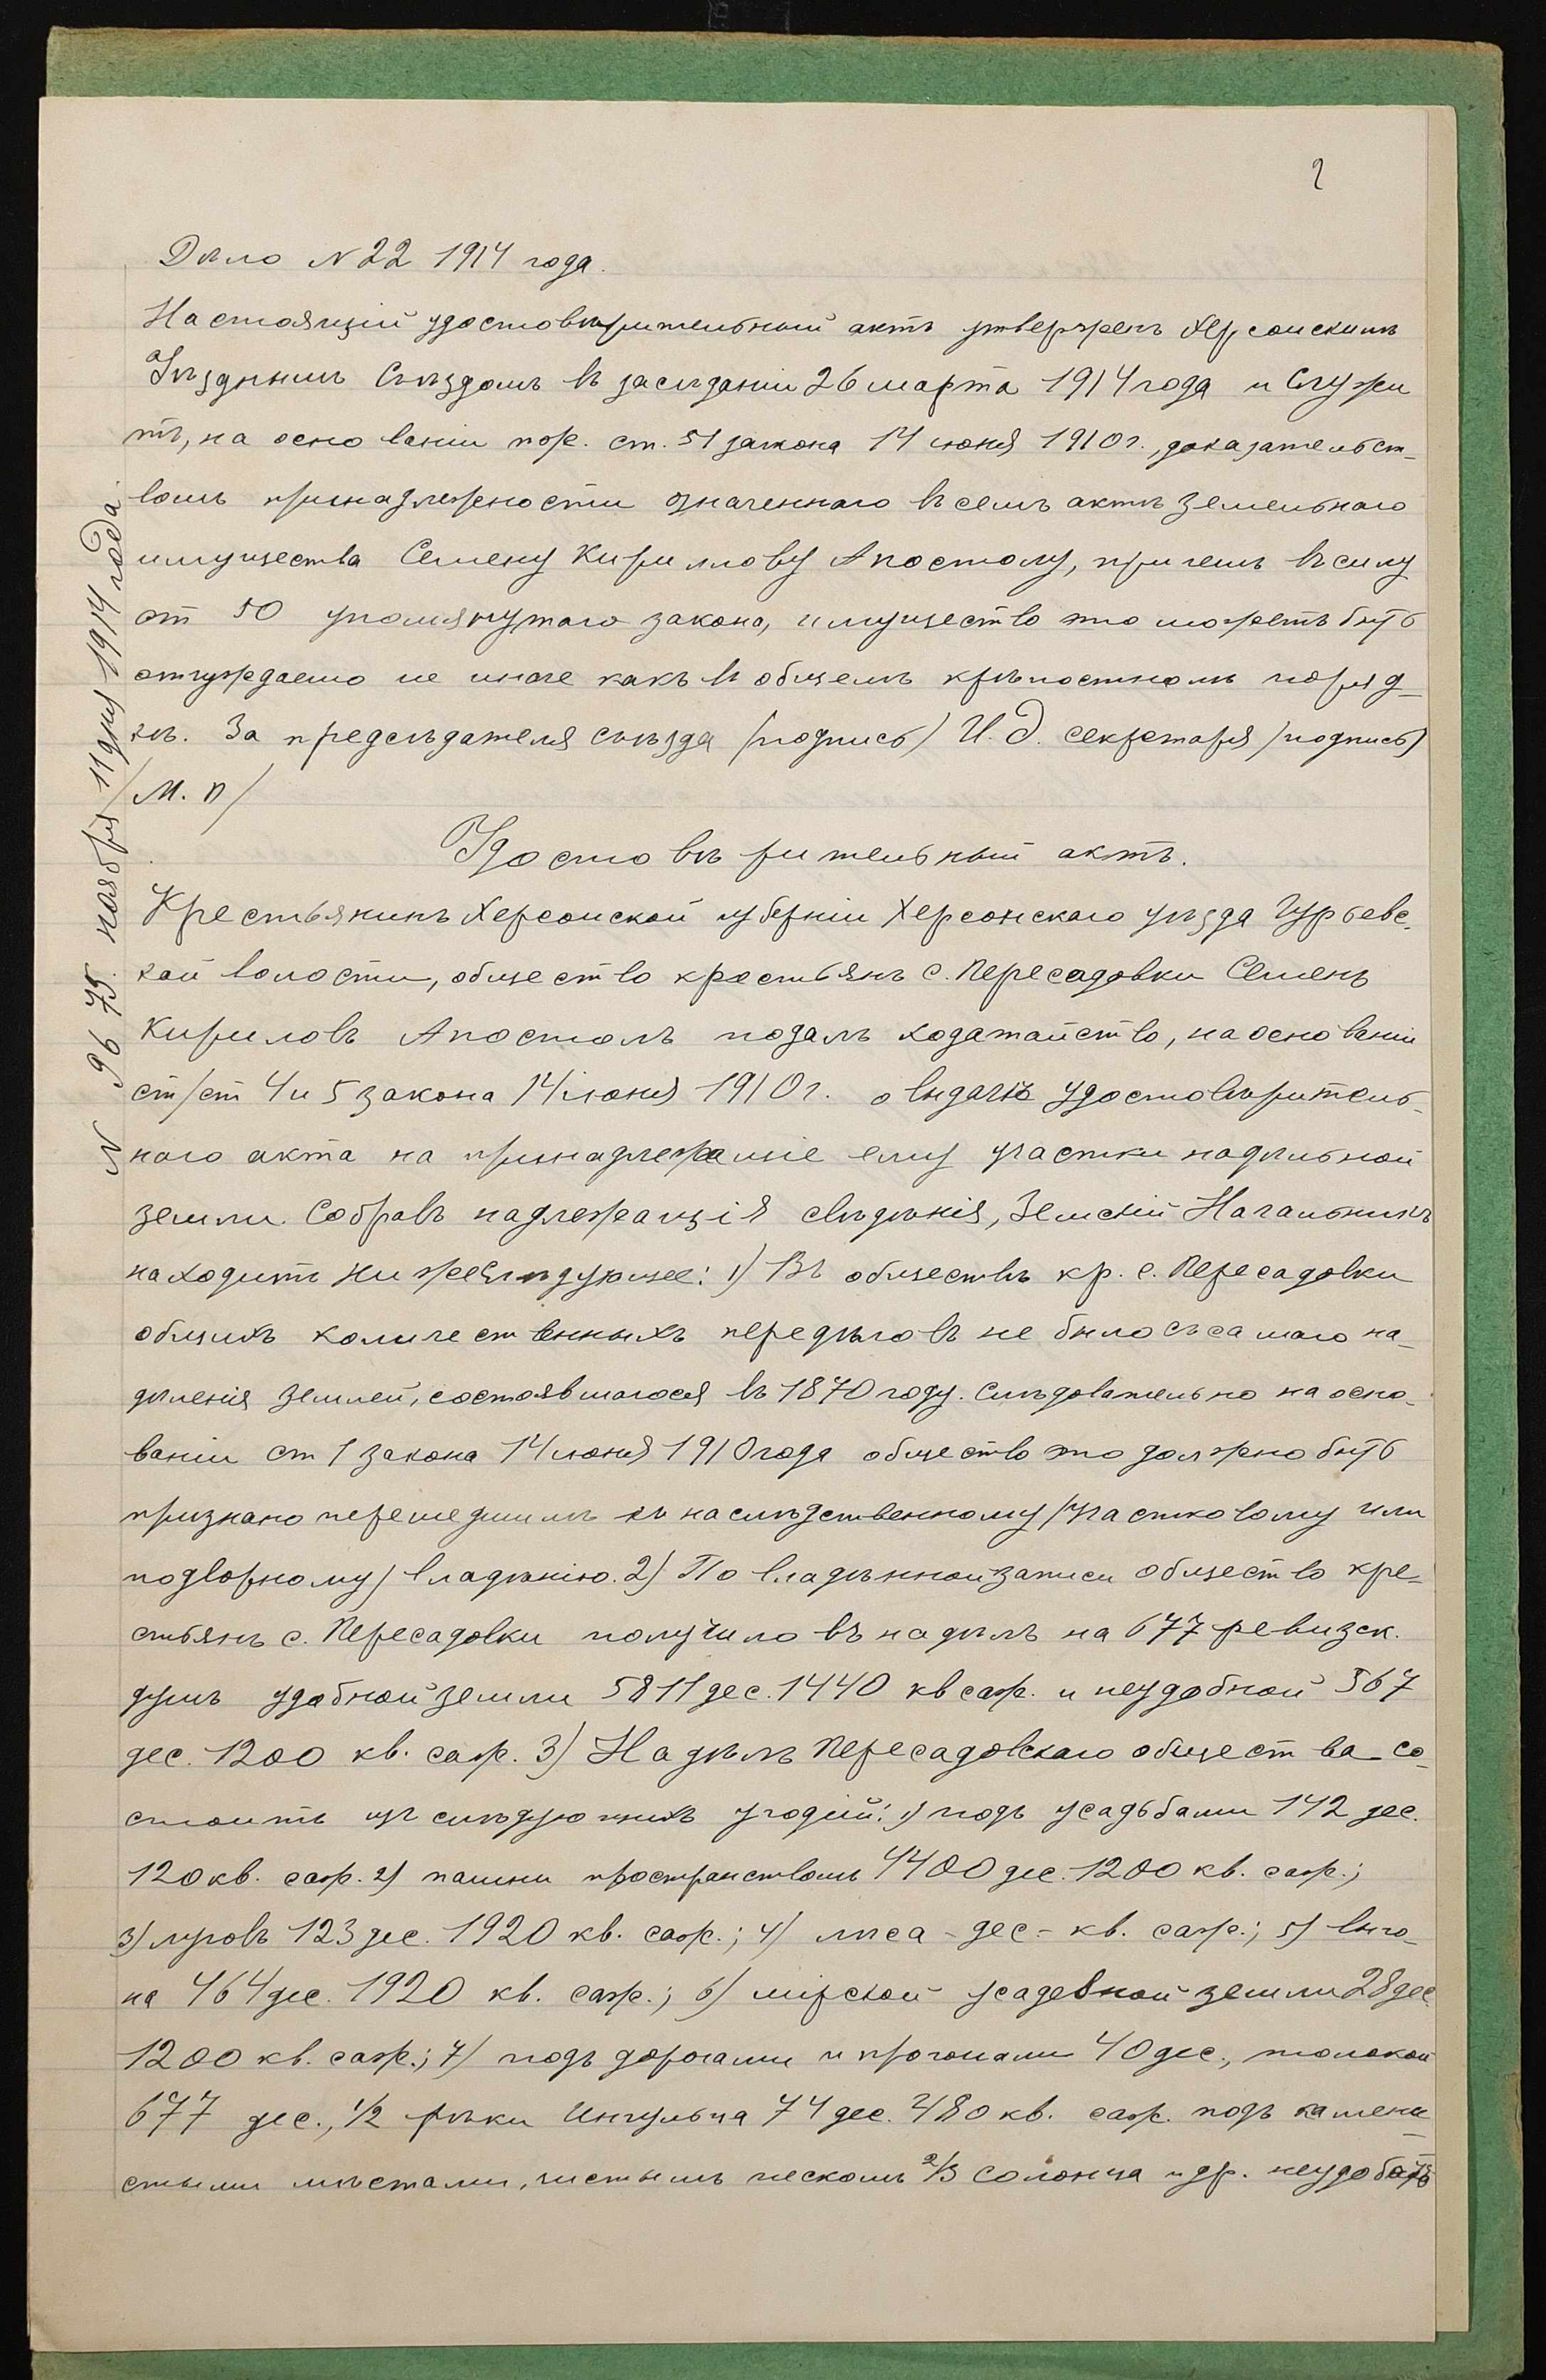 2
Дѣло N 22 1914 года.
Настоящій удостовѣрительный актъ утвержденъ Херсонскимъ
Уѣзднымъ Съѣздомъ въ засѣданіи 26 марта 1914 года и служи
тъ, на основаніи пор. ст. 51 закона 14 июня 1910 г., доказательст-
вомъ принадлежности означеннаго въ семъ актѣ земельнаго
имущества Семену Кириллову Апостолу, причемъ въ силу
ст 50 упомянутаго закона, имущество это можетъ быть
отчуждаемо не иначе какъ въ общемъ крѣпостномъ поряд-
кѣ. За предсѣдателя съѣзда /подпись/ И. д. секретаря /подпись/
/М. п/
Удостовѣрительный актъ.
Крестьянинъ Херсонской губерніи Херсонскаго уѣзда Гурьевс-
кой волости, общество крестьянъ с. Пересадовки Семенъ
Кириловъ Апостолъ подалъ ходатайство, на основаніи
ст/ст 4 и 5 закона 14 іюня 1910 г. о выдачѣ удостовѣритель-
наго акта на принадлежащіе ему участки надѣльной
земли. Собравъ надлежащія свѣдѣнія, Земскій Начальникъ
находитъ нижеслѣдующее: 1) Въ обществѣ кр. с. Пересадовки
общихъ количественныхъ передѣловъ не было съ самаго на-
дѣленія землей, состоявшагося въ 1870 году. Слѣдовательно на осно-
ваніи ст 1 закона 14 июня 1910 года общество это должно быть
признано перешедшимъ къ наслѣдственному /участковому или
подворному/ владѣнію. 2) По владѣнной записи общество кре-
стьянъ с. Пересадовки получило въ надѣлъ на 677 ревизск.
душъ удобной земли 5811 дес. 1440 кв саж. и неудобной 567
дес. 1200 кв. саж. 3) Надѣлъ Пересадовскаго общества со-
стоитъ изъ слѣдующихъ угодій: 1) подъ усадьбами 142 дес.
120 кв. саж. 2) пашни пространствомъ 4400 дес. 1200 кв. саж.;
3) луговъ 123 дес. 1920 кв. саж.; 4) лѣса - дес - кв. саж.; 5) выго-
на 464 дес. 1920 кв. саж.; 6) мірской усадебной земли 28 дес.
1200 кв. саж.; 7) подъ дорогами и прогонами 40 дес., толокой
677 дес., 1/2 рѣки Ингульца 74 дес. 480 кв. саж. подъ камени-
стыми мѣстами, чистымъ пескомъ 2/3 солонца и др. неудобст
N 9675. ноября 11 дня 1914 года.